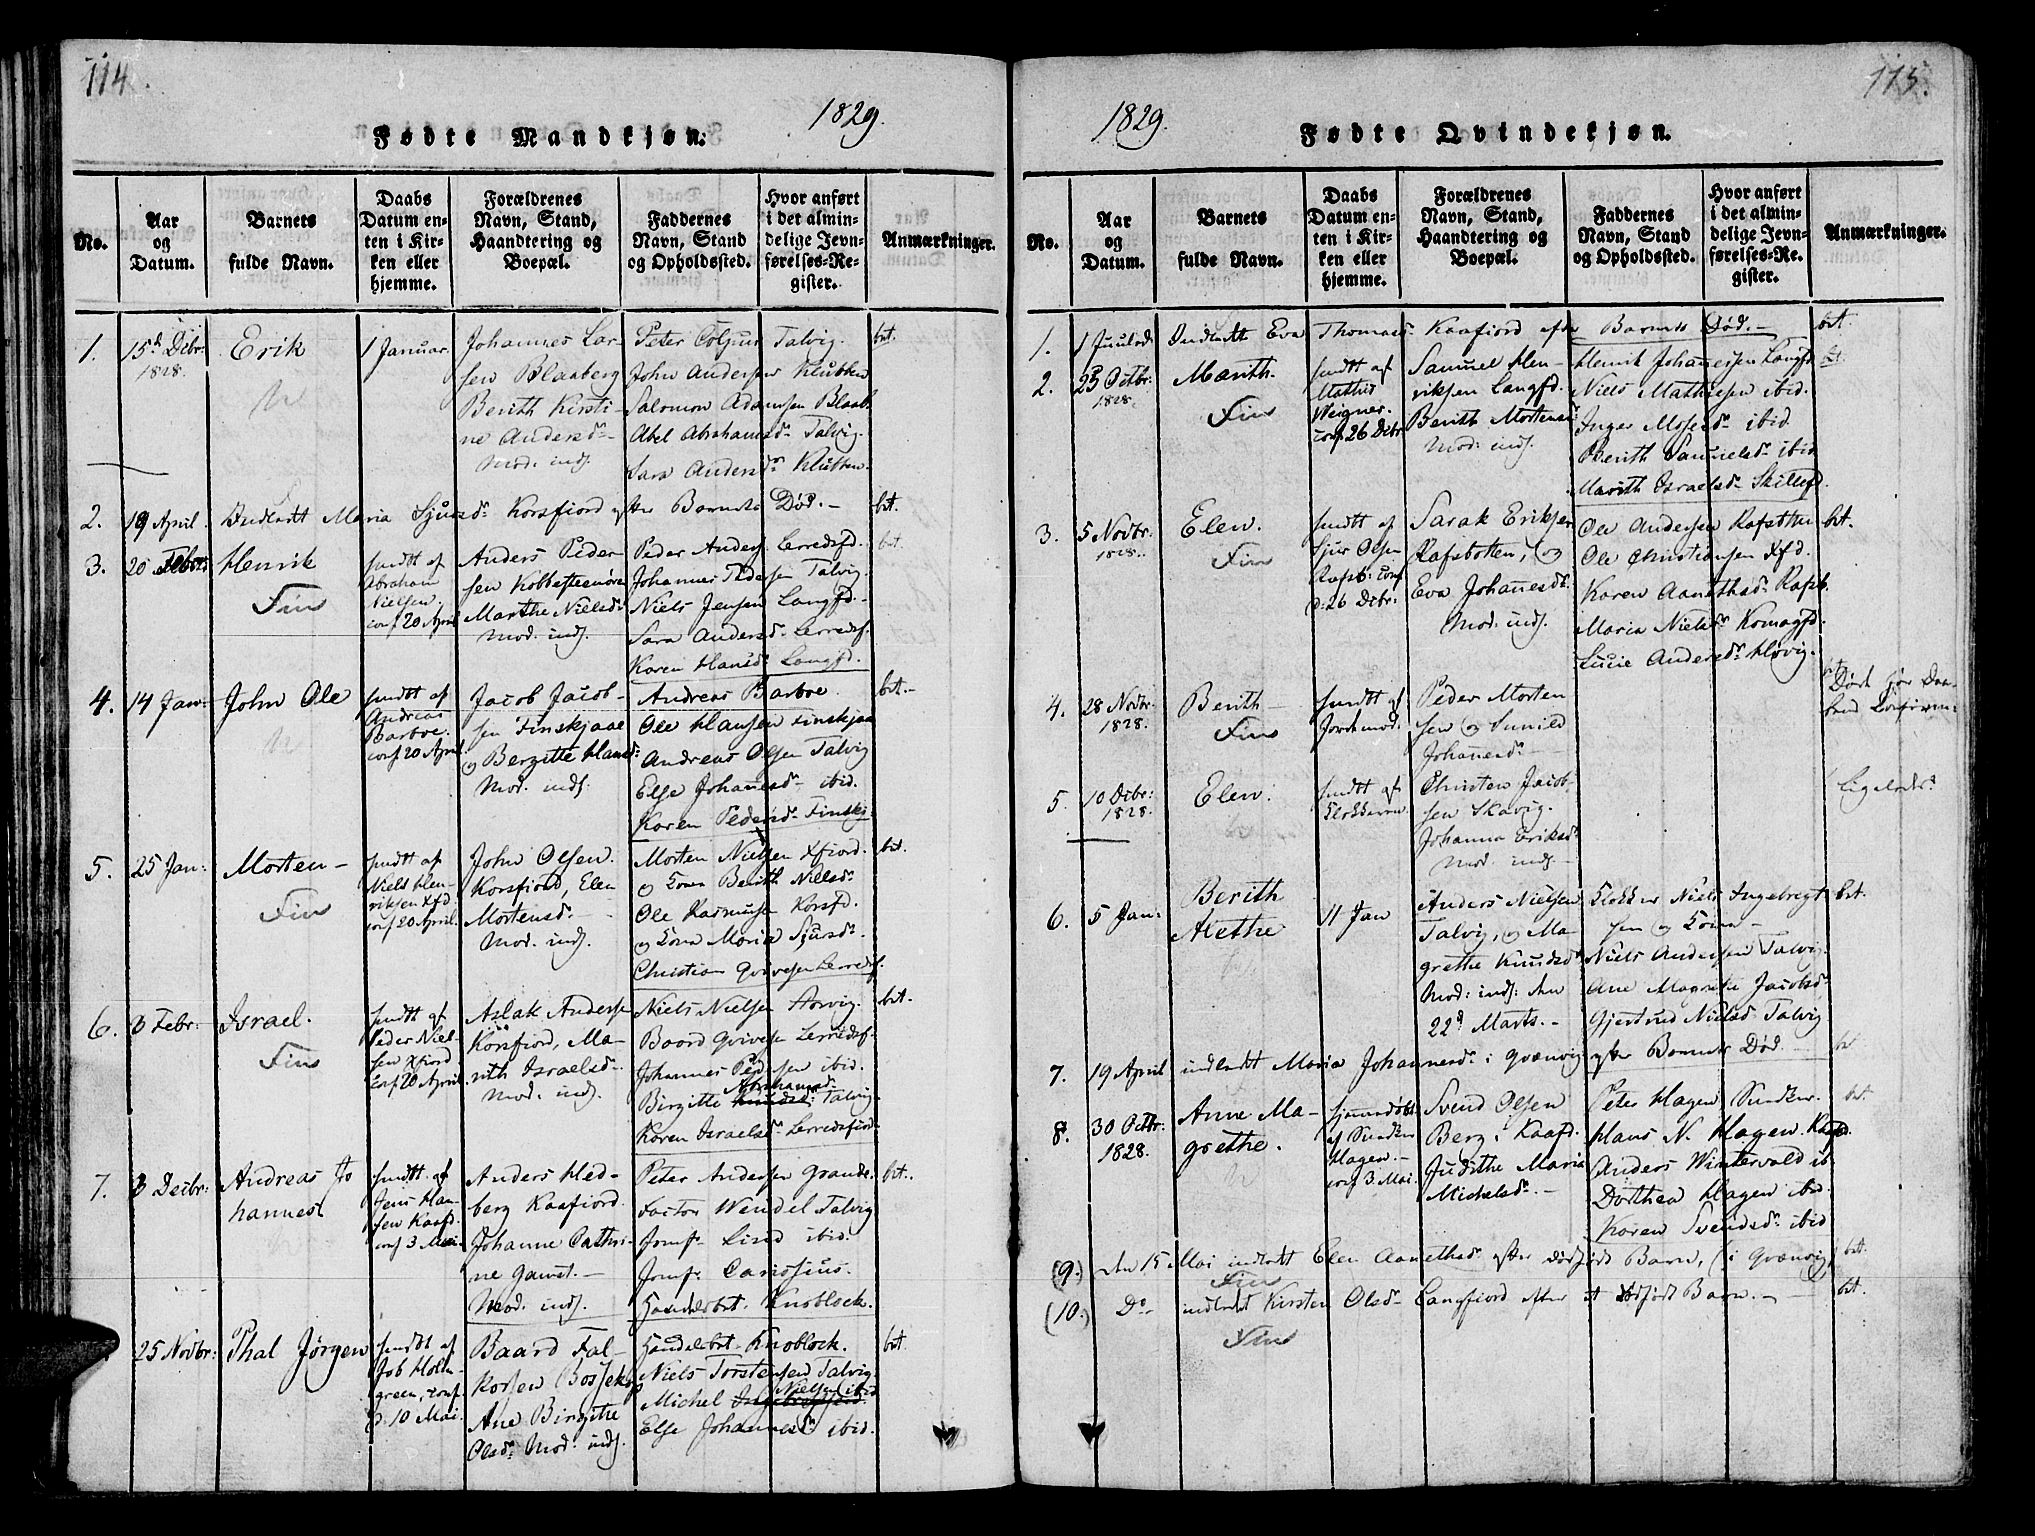 114.
1829.
Fødte Mandkjøn.
No.
Aar
og
Datum.
Barnets
fulde Navn.
Daabs
Datum en-
ten i Kir-
ken eller
hjemme.
Forældrenes
Navn, Stand,
Haandtering og
Boepæl.
Faddernes
Navn, Stand
og Opholdssted.
Hvor anført
i det almin-
delige Jevn-
førelses-Re-
gister.
Anmærkninger.
1. 15d Decbr: 1828. Erik 1 Januar.
Johannes Lar-
sen Blaaberg
Berith Kirsti-
ne Andersd.
Mod. indf.
Peter Talvig.
John Andersen Klubben
Salomon Adamsen Blaab.
Abel Abrahamsd. Talvig.
Sara Andersdr Klubben.
bet.
2. 19 April. Indledt Maria Sjursdr. Korsfiord efter Barnets Død. bet.
3. 20 Henrik
Fin
hmdt af
Abraham
Nielsen
conf 20 April
Anders Peder-
sen Kobbesteenøre
Marthe Nielsdr
Mod. indf.
Peder Anders. Lerredsfd.
Johannes Pedersen Talvig
Niels Jensen Langfd.
Sara Andersd. Lerredsf.
Karen Hansdr Langfd.
bet
4. 14 Jan: John Ole
hmdt af
Andreas
Barboe.
conf 20 April.
Jacob Jacob-
sen Finskjaae
og Bergitte Hansd:
Mod. indf.
Andreas Barboe.
Ole Hansen Finskjaa
Andreas Olsen Talvig
Else Johanesd. ibid.
Karen Pedersd. Finskj.
bet.
5. 25 Jan: Morten
Fin
hmdt af
Niels Hen-
riksen Xfd
conf 20 April.
John Olsen
Korsfiord, Elen
Mortensd.
Mod. indf.
Morten Nielsen Xfiord.
og Kona Berith Nielsdr
Ole Rasmusen Korsfd.
og Kona Maria Sjursdr.
Christian Qvivesen Lerredsf.
bet.
6. 3 Febr: Israel.
Fin
hmdt af
Peder Niel-
sen Xfiord
conf 20 April
Aslak Anderse
Korsfiord, Ma-
rith Israelsd.
Mod. indf.
Niels Nielsen
Baard Qvivese Lerredsf.
Johannes Pedersen ibid.
Birgitte Knudsd: Abrahamsd. Talvig
Karen Israelsdr Lerredsfiord
bet.
7. 3 Decbr: Andreas Jo
hannes
hmdt af
Jens Han-
sen Kaafd.
conf 3 Mai.
Anders Hed-
berg Kaafiord
Johanne Cathri-
ne
Mod. indf.
Peter Andersen
Factor Wendel Talvig
Jomfr. Lind ibid.
Jomfr.
Handelsbet. Knoblock.
bet.
25 Novbr: Thal Jørgen
hmdt af
Job Holm-
green, conf.
d: 10 Mai.
Baard Fal-
kosen Bossekop
Ane Birgithe
Olsdr. Mod. indf.
Handelsbet. Knoblock.
Niels Torstensen Talvig
Michel Ingebrigtsen Nielsen ibid.
Else Johannesdr ibid.
bet
115.
1829.
Fødte Qvindekjøn.
No.
Aar
og
Datum.
Barnets
fulde Navn.
Daabs
Datum en-
ten i Kir-
ken eller
hjemme.
Forældrenes
Navn, Stand,
Haandtering og
Boepæl.
Faddernes
Navn, Stand
og Opholdssted.
Hvor anført
i det almin-
delige Jevn-
førelses-Re-
gister.
Anmærkninger.
1. 1 Juuled. Indledt Eva Thomasdr Kaafiord efter Barnets Død. bet.
2. 25 Octbr: 1828. Marith.
Fin
hmdt af
Mathis
Weigner.
conf 26 Dcbr
Samuel Hen-
riksen Langfd.
Berith Mortensd:
Mod. indf.
Henrik Johannesen Langfd.
Niels Mathiesen ibid.
Inger Mosesdr ibid
Berith Samuelsd. ibid
Marith Israelsd. Skillefd.
bet.
3. 5 Novbr: 1828. Elen.
Fin
hmdt af
Sjur Olsen
Rafsb: conf
d: 26 Dcbr:
Sarak Eriksen
Rafsbotten, og
Eva Johanesdr.
Mod. indf.
Ole Andersen Rafsbtten
Ole Christiansen Xfd.
Karen Aanethsdr Rafsb.
Maria Nielsdr Komagfd.
Lucie Andersdr Kløvig.
bet.
4. 28 Novbr: 1828. Berith
Fin
hmdt af
Jordemod:
Peder Morten
sen og Sunild
Johanesd.
Død før Daa-
bens Confirm:
5. 10 Dcbr: 1828. Elen.
hmdt af
Klokkeren
Christen Jacob-
sen Skavig.
Johanna Eriksdr
Mod. indf.
Ligeledes
6. 5 Jan: Berith
Alethe 11 Jan
Anders Nielsen
Talvig, og Ma-
grethe Knudsd
Mod: indf: den
22d Marts.
Klokker Niels Ingebrigt
sen og Kona
Niels Andersen Talvig.
Ane Magrethe Jacobsdr
Gjertrud Nielsd. Talvig
bet.
7. 19 April indledt Maria Johannesdr i Qvænvig efter Barnets Død. bet
8. 30 Octbr: 1828. Anne Ma-
grethe.
hjemmedøbt
af Snedker
Hagen.
conf 3 Mai.
Svend Olsen
Berg i Kaafd.
Judithe Maria
Michelsdr.
Peter Hagen Snedker
Hans N. Hagen Kaafd.
Anders Wintervold ib
Dorthea Hagen ibid.
Karen Svendsdr ibid
bet.
(9.) den 15 Mai indledt Elen Aanethsdr efter dødfødt Barn, (i Qvænvig) bet.
Fin
(10.) Do indledt Kirsten Olsd. Langfiord efter et dødfødt Barn. bet.
Fin